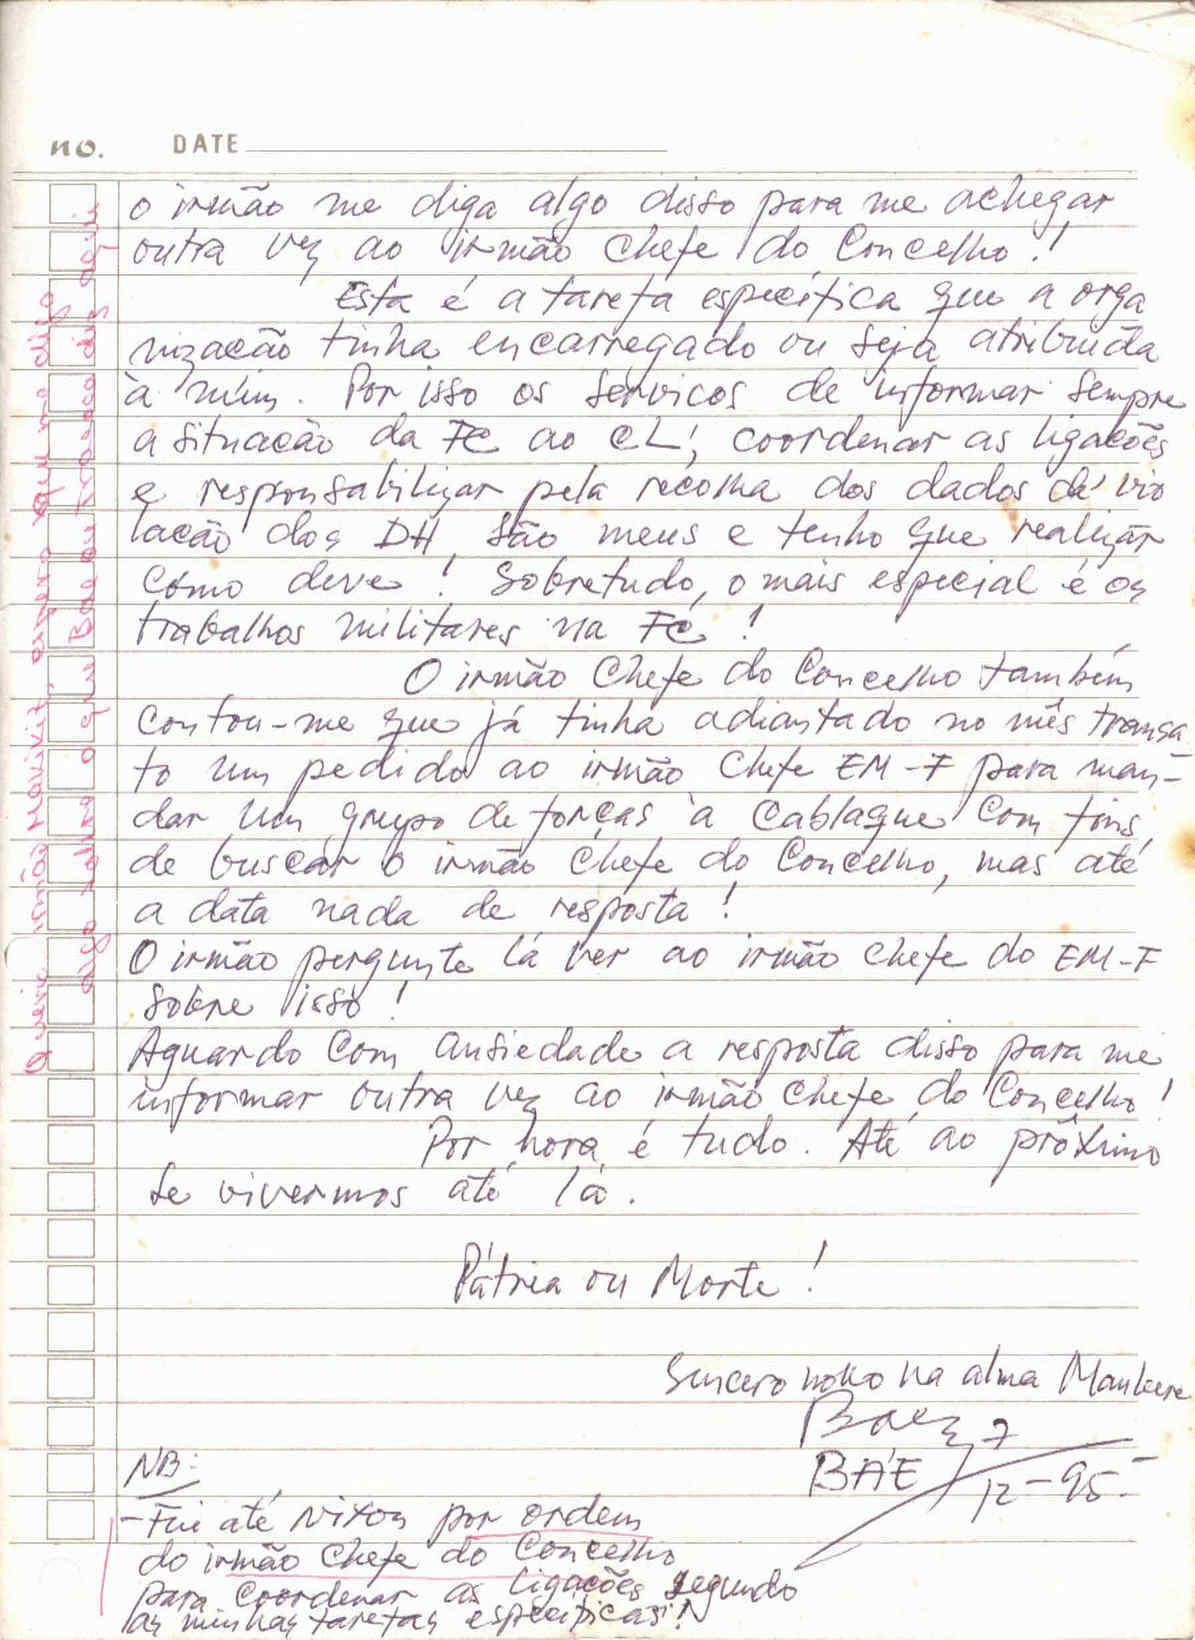 no. DATE
o irmão me diga algo disso para me achegar
outra vez ao irmão Chefe do Concelho!
Esta é a tarefa específica que a orga
nização tinha encarregado ou seja atribuída
à mim. Por isso os serviços de informar sempre
a situação da FC ao CL, coordenar as ligações
e responsabilizar pela recolha dos dados da vio
lação dos DH, são meus e tenho que realizar
como deve! Sobretudo, o mais especial é os
trabalhos militares na FC!
O irmão Chefe do Concelho também
contou-me que já tinha adiantado no mês transa
to um pedido ao irmão Chefe EM-F para man-
dar um grupo de forças à Cablaque com fins
de buscar o irmão Chefe do Concelho, mas até
a data nada de resposta!
O irmão pergunte lá ver ao irmão Chefe do EM-F
sobre isso!
Aguardo com ansiedade a resposta disso para me
informar outra vez ao irmão Chefe do Concelho!
Por hora é tudo. Até ao próximo
se vivermos até lá.
Pátria ou Morte!
Sincero hoko na alma Maubere
BÁE
12-95-
NB:
-Fui até Nixon por ordem
do irmão Chefe do Concelho
para coordenar as ligações segundo
as minhas tarefas específicas!
irmão quero que me diga
algo sobre o que Bae ou diz aqui